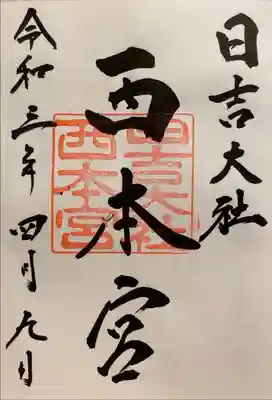 日吉大社
西本宮
令和三年四月九日
日吉大社
西本宮